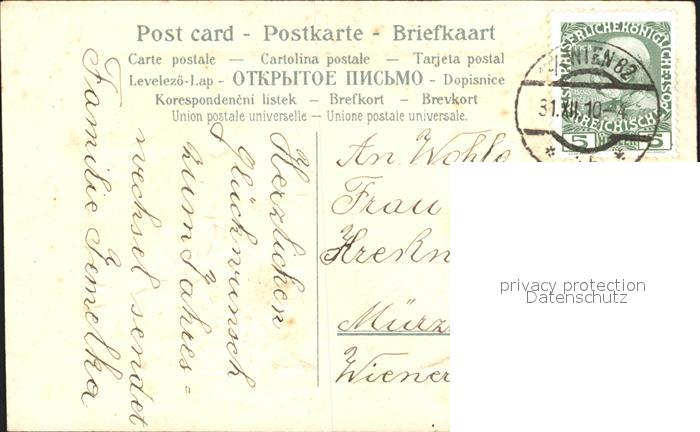 Post card - Postkarte - Briefkaart
Carte postale — Cartolina postale — Tarjeta postal
Levelező-Lap - ОТКРЫТОЕ ПИСЬМО - Dopisnice
Korespondenční listek — Brefkort — Brevkort
Union postale universelle — Unione postale universale.
Herzlichen
Glückwunsch
zum Jahres=
wechsel sendet
Familie Jemelka
An Wohlg
Frau
Mürz
Wiener
WIEN 82
31.XII.10
5 5
privacy protection
Datenschutz